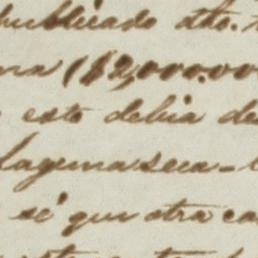 publicado dho.
($2,000.00
esto debia de
laguna seca-
sé que otra ca